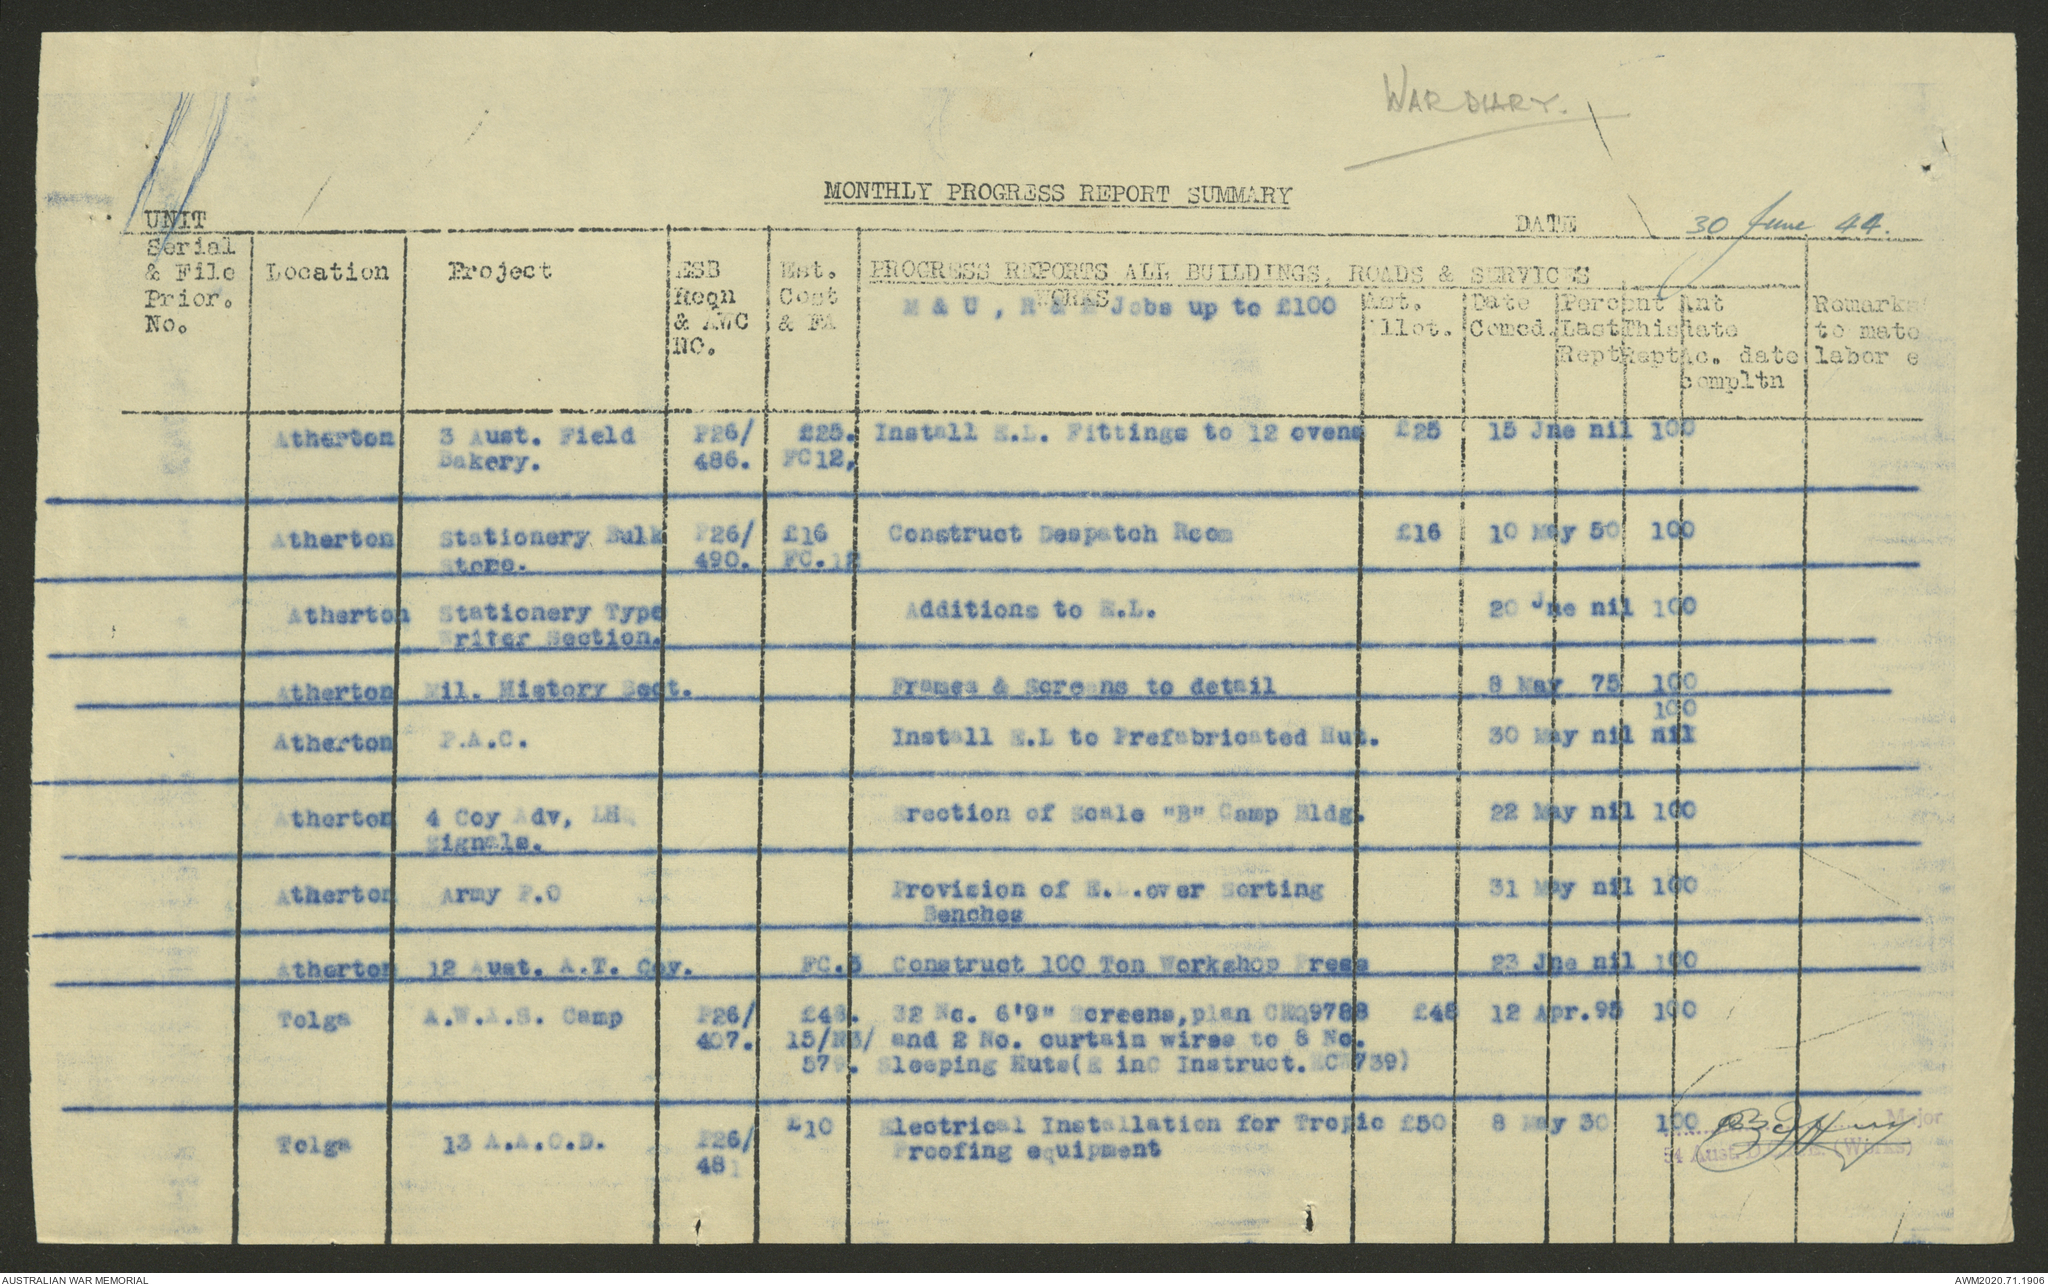 WAR DIARY.
MONTHLY PROGRESS REPORT SUMMARY
UNIT
DATE 30 June 44.
Serial & File Prior. No.
Location
Project
ESB Reqn & AWC NO.
Est. Cost & FA
PROGRESS REPORTS ALL BUILDINGS, ROADS & SERVICES
WORKS
M & U , R & M Jobs up to £100
Amt. Allot.
Date Comcd.
Percent Last Rept
This Rept
Ant date Ac. date compltn
Remarks to mate labor e
Atherton 3 Aust. Field P26/ £25. Install E.L. Fittings to 12 ovens £25 15 Jne nil 100
Bakery. 486. FC12,
Atherton Stationery Bulk P26/ £16 Construct Despatch Room £16 10 May 50 100
Store. 490. FC.12
Atherton Stationery Type Additions to E.L. 20 Jne nil 100
Writer Section.
Atherton Mil. History Sect. Frames & Screens to detail 8 May 75 100
100
Atherton P.A.C. Install E.L to Prefabricated Hut. 30 May nil nil
Atherton 4 Coy Adv, LHQ Erection of Scale "B" Camp Bldg. 22 May nil 100
Signals.
Atherton Army P.O Provision of E.L.over Sorting 31 May nil 100
Benches
Atherton 12 Aust. A.T. Coy. FC.5 Construct 100 Ton Workshop Press 23 Jne nil 100
Tolga A.W.A.S. Camp P26/ £48. 32 No. 6'9" Screens,plan CEQ9788 £48 12 Apr.95 100
407. 15/N3/ and 2 No. curtain wires to 8 No.
579. Sleeping Huts(E inC Instruct. 739)
Tolga 13 A.A.O.D. P26/ £10 Electrical Installation for Tropic £50 8 May 30 100
481 Proofing equipment
Major
54 Aust. (Works)
AUSTRALIAN WAR MEMORIAL
AWM2020.71.1906